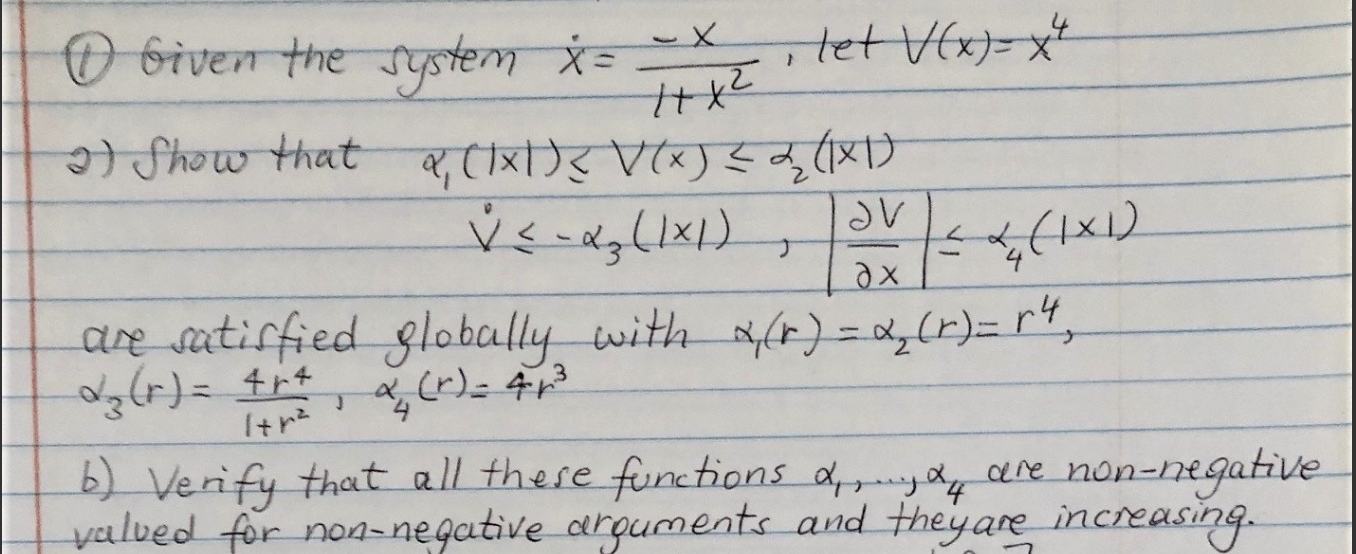 ① Given the system ẋ = -x / (1+x²) , let V(x) = x⁴
a) Show that α₁(|x|) ≤ V(x) ≤ α₂(|x|)
V̇ ≤ -α₃(|x|) , |∂V/∂x| ≤ α₄(|x|)
are satisfied globally with α₁(r) = α₂(r) = r⁴,
α₃(r) = 4r⁴ / (1+r²) , α₄(r) = 4r³
b) Verify that all these functions α₁, ..., α₄ are non-negative
valued for non-negative arguments and they are increasing.